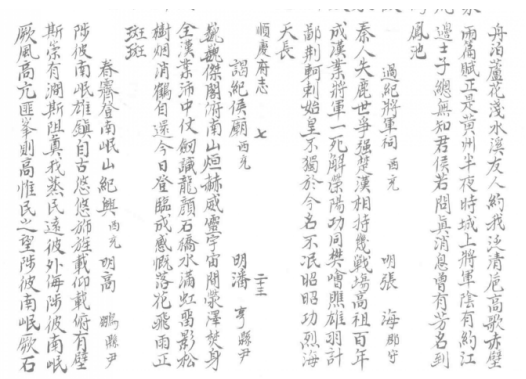 舟泊蘆花淺水溪友人約我泛清巵高歌赤壁
兩篇賦正是黃州半夜時城上將軍陰有約江
邊士子總無知君侯若問真消息曾有芳名到
鳳池
過紀將軍祠 西充 明張 海郡守
秦人失鹿世爭強楚漢相持幾戰場高祖百年
成漢業將軍一死解滎陽功同樊噲賺雄羽計
鄙荆軻刺始皇不獨於今名不泯昭昭功烈海
天長
順慶府志 七 二十三
謁紀侯廟 西充 明潘 亨縣尹
巍巍傑閣俯南山烜赫威靈宇宙間滎澤焚身
全漢業沛中仗劒識龍顏石橋水滿虹留影松
樹烟消鶴自還今日登臨成感慨落花飛雨正
斑斑
春霽登南岷山紀興 西充 明高 鵬縣尹
陟彼南岷雄鎮自古悠悠旆旌載仰載俯有壁
斯崇有澗斯阻真我烝民遠彼外侮陟彼南岷
厥風高亢匪峯則高惟民之望陟彼南岷厥石